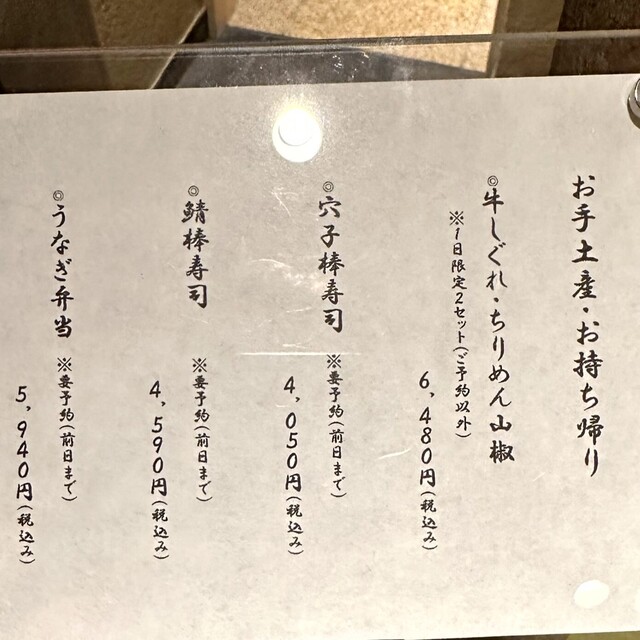 お手土産・お持ち帰り
◎牛しぐれ・ちりめん山椒
※1日限定2セット(ご予約以外)
6,480円(税込み)
◎穴子棒寿司
※要予約(前日まで)
4,050円(税込み)
◎鯖棒寿司
※要予約(前日まで)
4,590円(税込み)
◎うなぎ弁当
※要予約(前日まで)
5,940円(税込み)